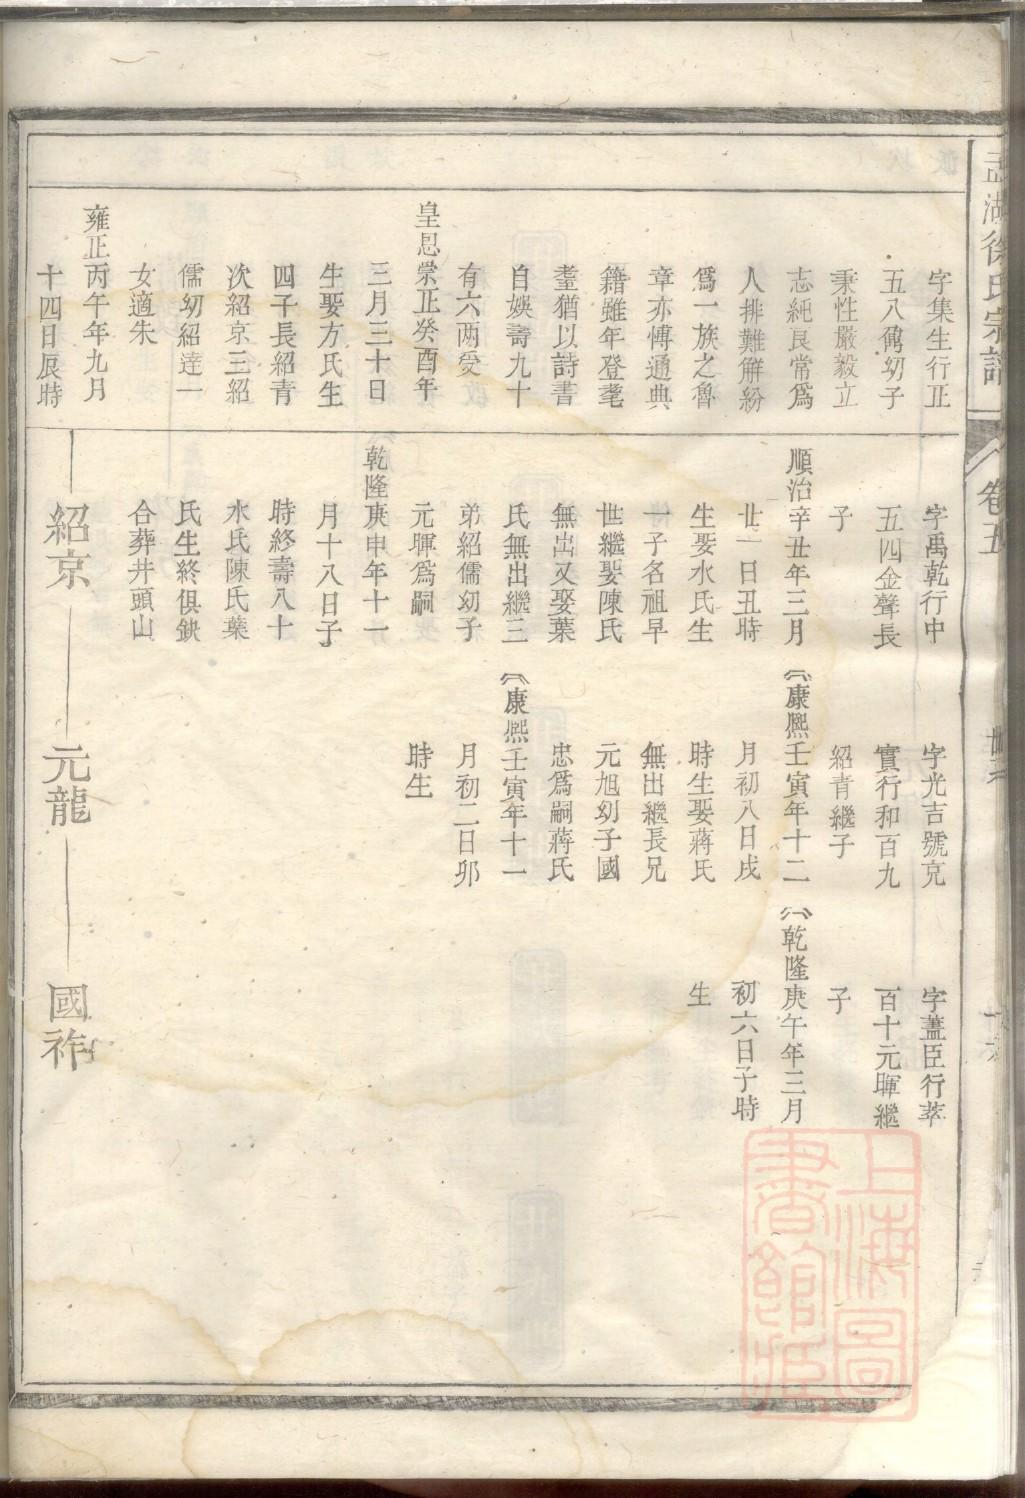 湖徐氏宗譜
卷五
字集生行正
五八儁幼子
秉性嚴毅立
志純良常爲
人排難解紛
爲一族之魯
章亦博通典
籍雖年登耄
耋猶以詩書
自娛壽九十
有六兩受
皇恩崇正癸酉年
三月三十日
生娶方氏生
四子長紹青
次紹京三紹
儒幼紹達一
女適朱
雍正丙午年九月
十四日辰時
字禹乾行中
五四金聲長
子
順治辛丑年三月
廿一日丑時
生娶水氏生
一子名祖早
世繼娶陳氏
無出又娶葉
氏無出繼三
弟紹儒幼子
元暉爲嗣
乾隆庚申年十一
月十八日子
時終壽八十
水氏陳氏葉
氏生終俱缺
合葬井頭山
紹京
字光吉號克
實行和百九
紹青繼子
康熙壬寅年十二
月初八日戌
時生娶蔣氏
無出繼長兄
元旭幼子國
忠爲嗣蔣氏
康熙壬寅年十一
月初二日卯
時生
元龍
字藎臣行萃
百十元暉繼
子
乾隆庚午年三月
初六日子時
生
國祚
上海圖
書館藏